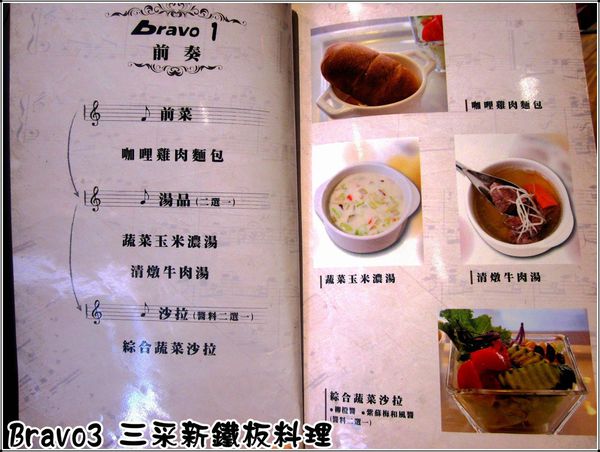 bravo 1
前奏
前菜
咖哩雞肉麵包
湯品(二選一)
蔬菜玉米濃湯
清燉牛肉湯
沙拉(醬料二選一)
綜合蔬菜沙拉
咖哩雞肉麵包
蔬菜玉米濃湯
清燉牛肉湯
綜合蔬菜沙拉
●柳橙醬 ●紫蘇梅和風醬
(醬料二選一)
Bravo3 三采新鐵板料理